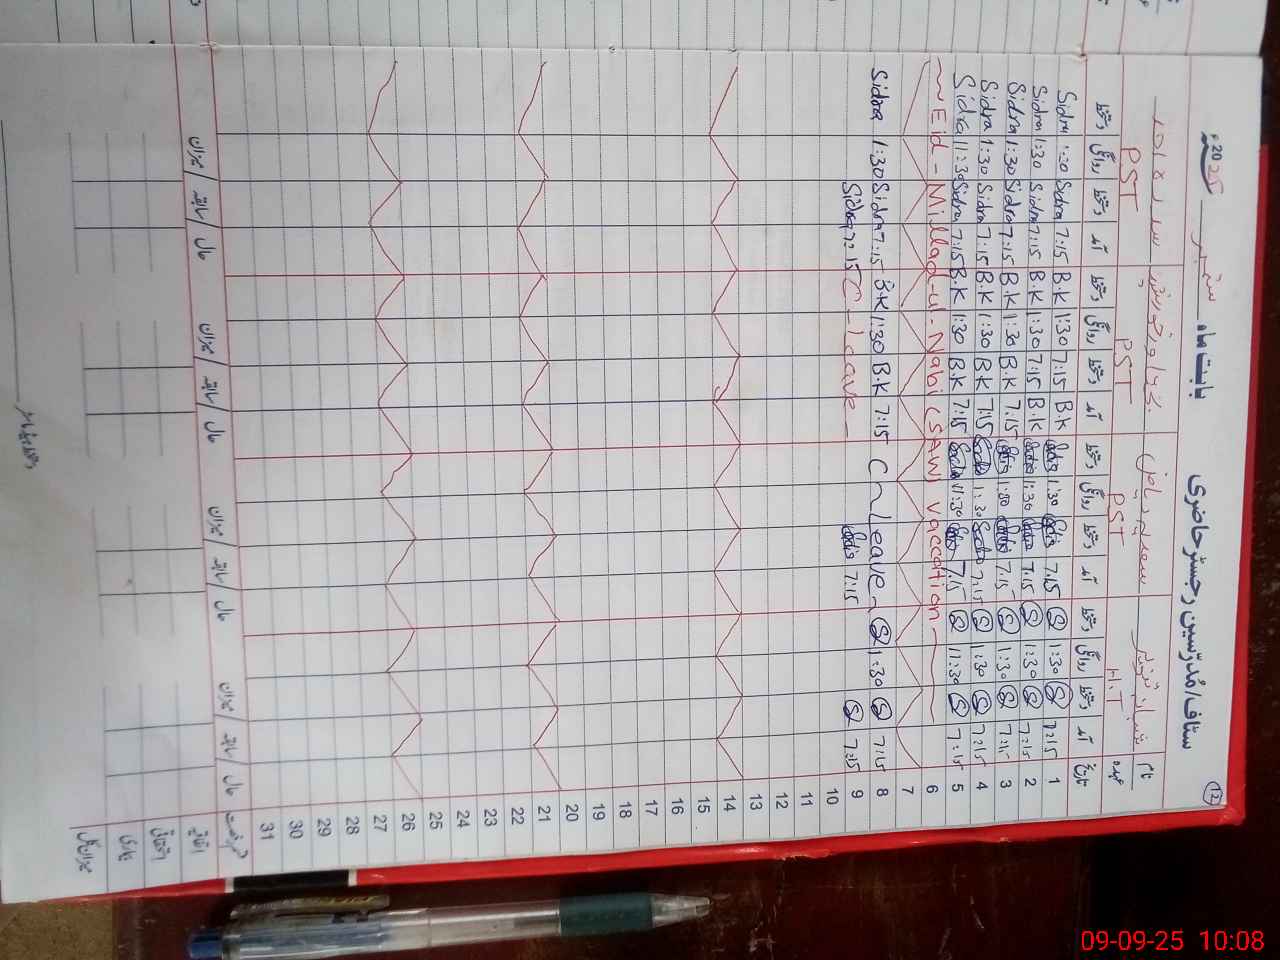 12
سٹاف/مُدرّسین رجسٹر حاضری بابت ماہ ستمبر 2025ء
نام
عہدہ H.T PST PST PST
تاریخ آمد دستخط روانگی دستخط آمد دستخط روانگی دستخط آمد دستخط روانگی دستخط آمد دستخط روانگی دستخط
1 7:15 S 1:30 S 7:15 1:30 B.K 7:15 1:30 B.K 7:15 Sidra 1:30 Sidra
2 7:15 S 1:30 S 7:15 1:30 B.K 7:15 1:30 B.K 7:15 Sidra 1:30 Sidra
3 7:15 S 1:30 S 7:15 1:30 7:15 B.K 1:30 B.K 7:15 Sidra 1:30 Sidra
4 7:15 S 1:30 S 7:15 1:30 7:15 B.K 1:30 B.K 7:15 Sidra 1:30 Sidra
5 7:15 S 11:30 S 7:15 11:30 7:15 B.K 1:30 B.K 7:15 Sidra 11:30 Sidra
6 Eid - Millad-ul-Nabi (SAW) vaccation
7
8 7:15 S 1:30 S C - Leave 7:15 B.K 1:30 B.K 7:15 Sidra 1:30 Sidra
9 7:15 S 7:15 C - leave 7:15 Sidra
10
11
12
13
14
15
16
17
18
19
20
21
22
23
24
25
26
27
28
29
30
31
حال / سابقہ / میزان حال / سابقہ / میزان حال / سابقہ / میزان حال / سابقہ / میزان
09-09-25 10:08